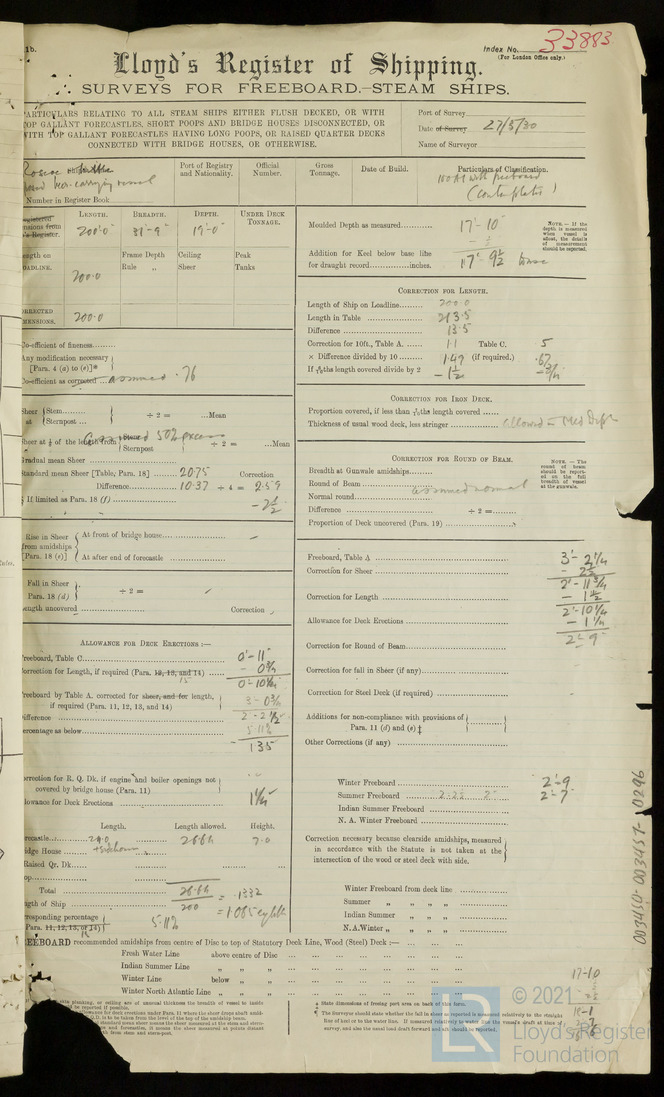 1b.
Index No. 33883
(For London Office only.)
Lloyd's Register of Shipping.
SURVEYS FOR FREEBOARD.—STEAM SHIPS.
PARTICULARS RELATING TO ALL STEAM SHIPS EITHER FLUSH DECKED, OR WITH
TOP GALLANT FORECASTLES, SHORT POOPS AND BRIDGE HOUSES DISCONNECTED, OR
WITH TOP GALLANT FORECASTLES HAVING LONG POOPS, OR RAISED QUARTER DECKS
CONNECTED WITH BRIDGE HOUSES, OR OTHERWISE.
Port of Survey
Date of Survey 27/5/30
Name of Surveyor
Roscoe
carrying vessel
Number in Register Book
Port of Registry and Nationality.
Official Number.
Gross Tonnage.
Date of Build.
Particulars of Classification.
100A1 with freeboard
(Contemplated)
LENGTH. BREADTH. DEPTH. UNDER DECK TONNAGE.
200'·0 31'-9" 19'-0"
Frame Depth Ceiling Peak
Rule „ Sheer Tanks
200·0
200·0
Moulded Depth as measured 17'-10"
Addition for Keel below base line
for draught record inches. 17'-9½
NOTE.—If the depth is measured when vessel is afloat, the details of measurement should be reported.
CORRECTION FOR LENGTH.
Length of Ship on Loadline 200·0
Length in Table 213·5
Difference 13·5
Correction for 10ft., Table A. 1·1 Table C. ·5
× Difference divided by 10 1·49 (if required.) ·67
If 6/10ths length covered divide by 2 - 1½ -¾
Co-efficient of fineness
Any modification necessary
[Para. 4 (a) to (e)]*
Co-efficient as corrected assumed ·76
Sheer at { Stem
Sternpost ÷ 2 = Mean
Sheer at ⅛ of the length from { Stem
Sternpost ÷ 2 = Mean
50% excess
Gradual mean Sheer
Standard mean Sheer [Table, Para. 18] 20·75 Correction
Difference 10·37 ÷ 4 = 2·59
If limited as Para. 18 (f) -2½
CORRECTION FOR IRON DECK.
Proportion covered, if less than 7/10ths length covered
Thickness of usual wood deck, less stringer
CORRECTION FOR ROUND OF BEAM.
Breadth at Gunwale amidships
Round of Beam
assumed normal
Normal round
Difference ÷ 2 =
Proportion of Deck uncovered (Para. 19)
NOTE.—The round of beam should be reported on the full breadth of vessel at the gunwale.
Rise in Sheer from amidships [Para. 18 (e)]
At front of bridge house
At after end of forecastle
Fall in Sheer
Para. 18 (d) ÷ 2 =
Length uncovered Correction
Freeboard, Table A 3'-2¼
Correction for Sheer - 2½
2'-11¾
Correction for Length - 1½
2'-10¼
Allowance for Deck Erections - 1¼
2'-9
Correction for Round of Beam
Correction for fall in Sheer (if any)
Correction for Steel Deck (if required)
Additions for non-compliance with provisions of
Para. 11 (d) and (e) ‡
Other Corrections (if any)
ALLOWANCE FOR DECK ERECTIONS :—
Freeboard, Table C 0'-11"
Correction for Length, if required (Para. 12, 13, and 14) - 0¾
0'-10¼
Freeboard by Table A. corrected for sheer, and for length,
if required (Para. 11, 12, 13, and 14) 3-0¾
Difference 2-2½
Percentage as below 5·11%
1·35
Correction for R. Q. Dk. if engine and boiler openings not
covered by bridge house (Para. 11)
Allowance for Deck Erections 1¼
Length. Length allowed. Height.
Forecastle 29·0 26·64 7·0
Bridge House
Raised Qr. Dk.
Total 26·64
Length of Ship 200 = ·1332
Corresponding percentage
Para. 11, 12, 13, or 14) 5·11%
Winter Freeboard 2'-9
Summer Freeboard 2'-7
Indian Summer Freeboard
N. A. Winter Freeboard
Correction necessary because clearside amidships, measured
in accordance with the Statute is not taken at the
intersection of the wood or steel deck with side.
Winter Freeboard from deck line
Summer „ „ „
Indian Summer „ „ „
N.A. Winter „ „ „
FREEBOARD recommended amidships from centre of Disc to top of Statutory Deck Line, Wood (Steel) Deck :—
Fresh Water Line above centre of Disc
Indian Summer Line „ „
Winter Line below „ „
Winter North Atlantic Line „ „ „
17-10
* State dimensions of freeing port area on back of this form.
¶ The Surveyor should state whether the fall in sheer as reported is measured relatively to the straight
line of keel or to the water line. If measured relatively to water line the vessel's draft at time of
survey, and also the usual load draft forward and aft should be reported.
003450-003457-0296
LR
© 2021
Lloyd's Register
Foundation